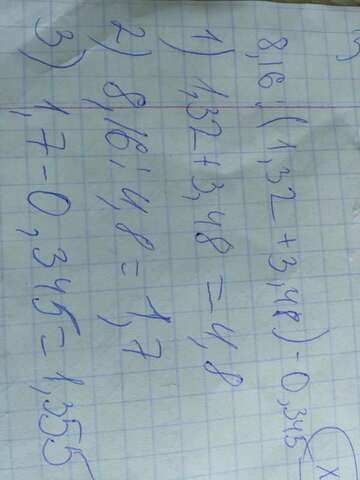 8,16:(1,32+3,48)-0,345
1) 1,32+3,48=4,8
2) 8,16:4,8=1,7
3) 1,7-0,345=1,355